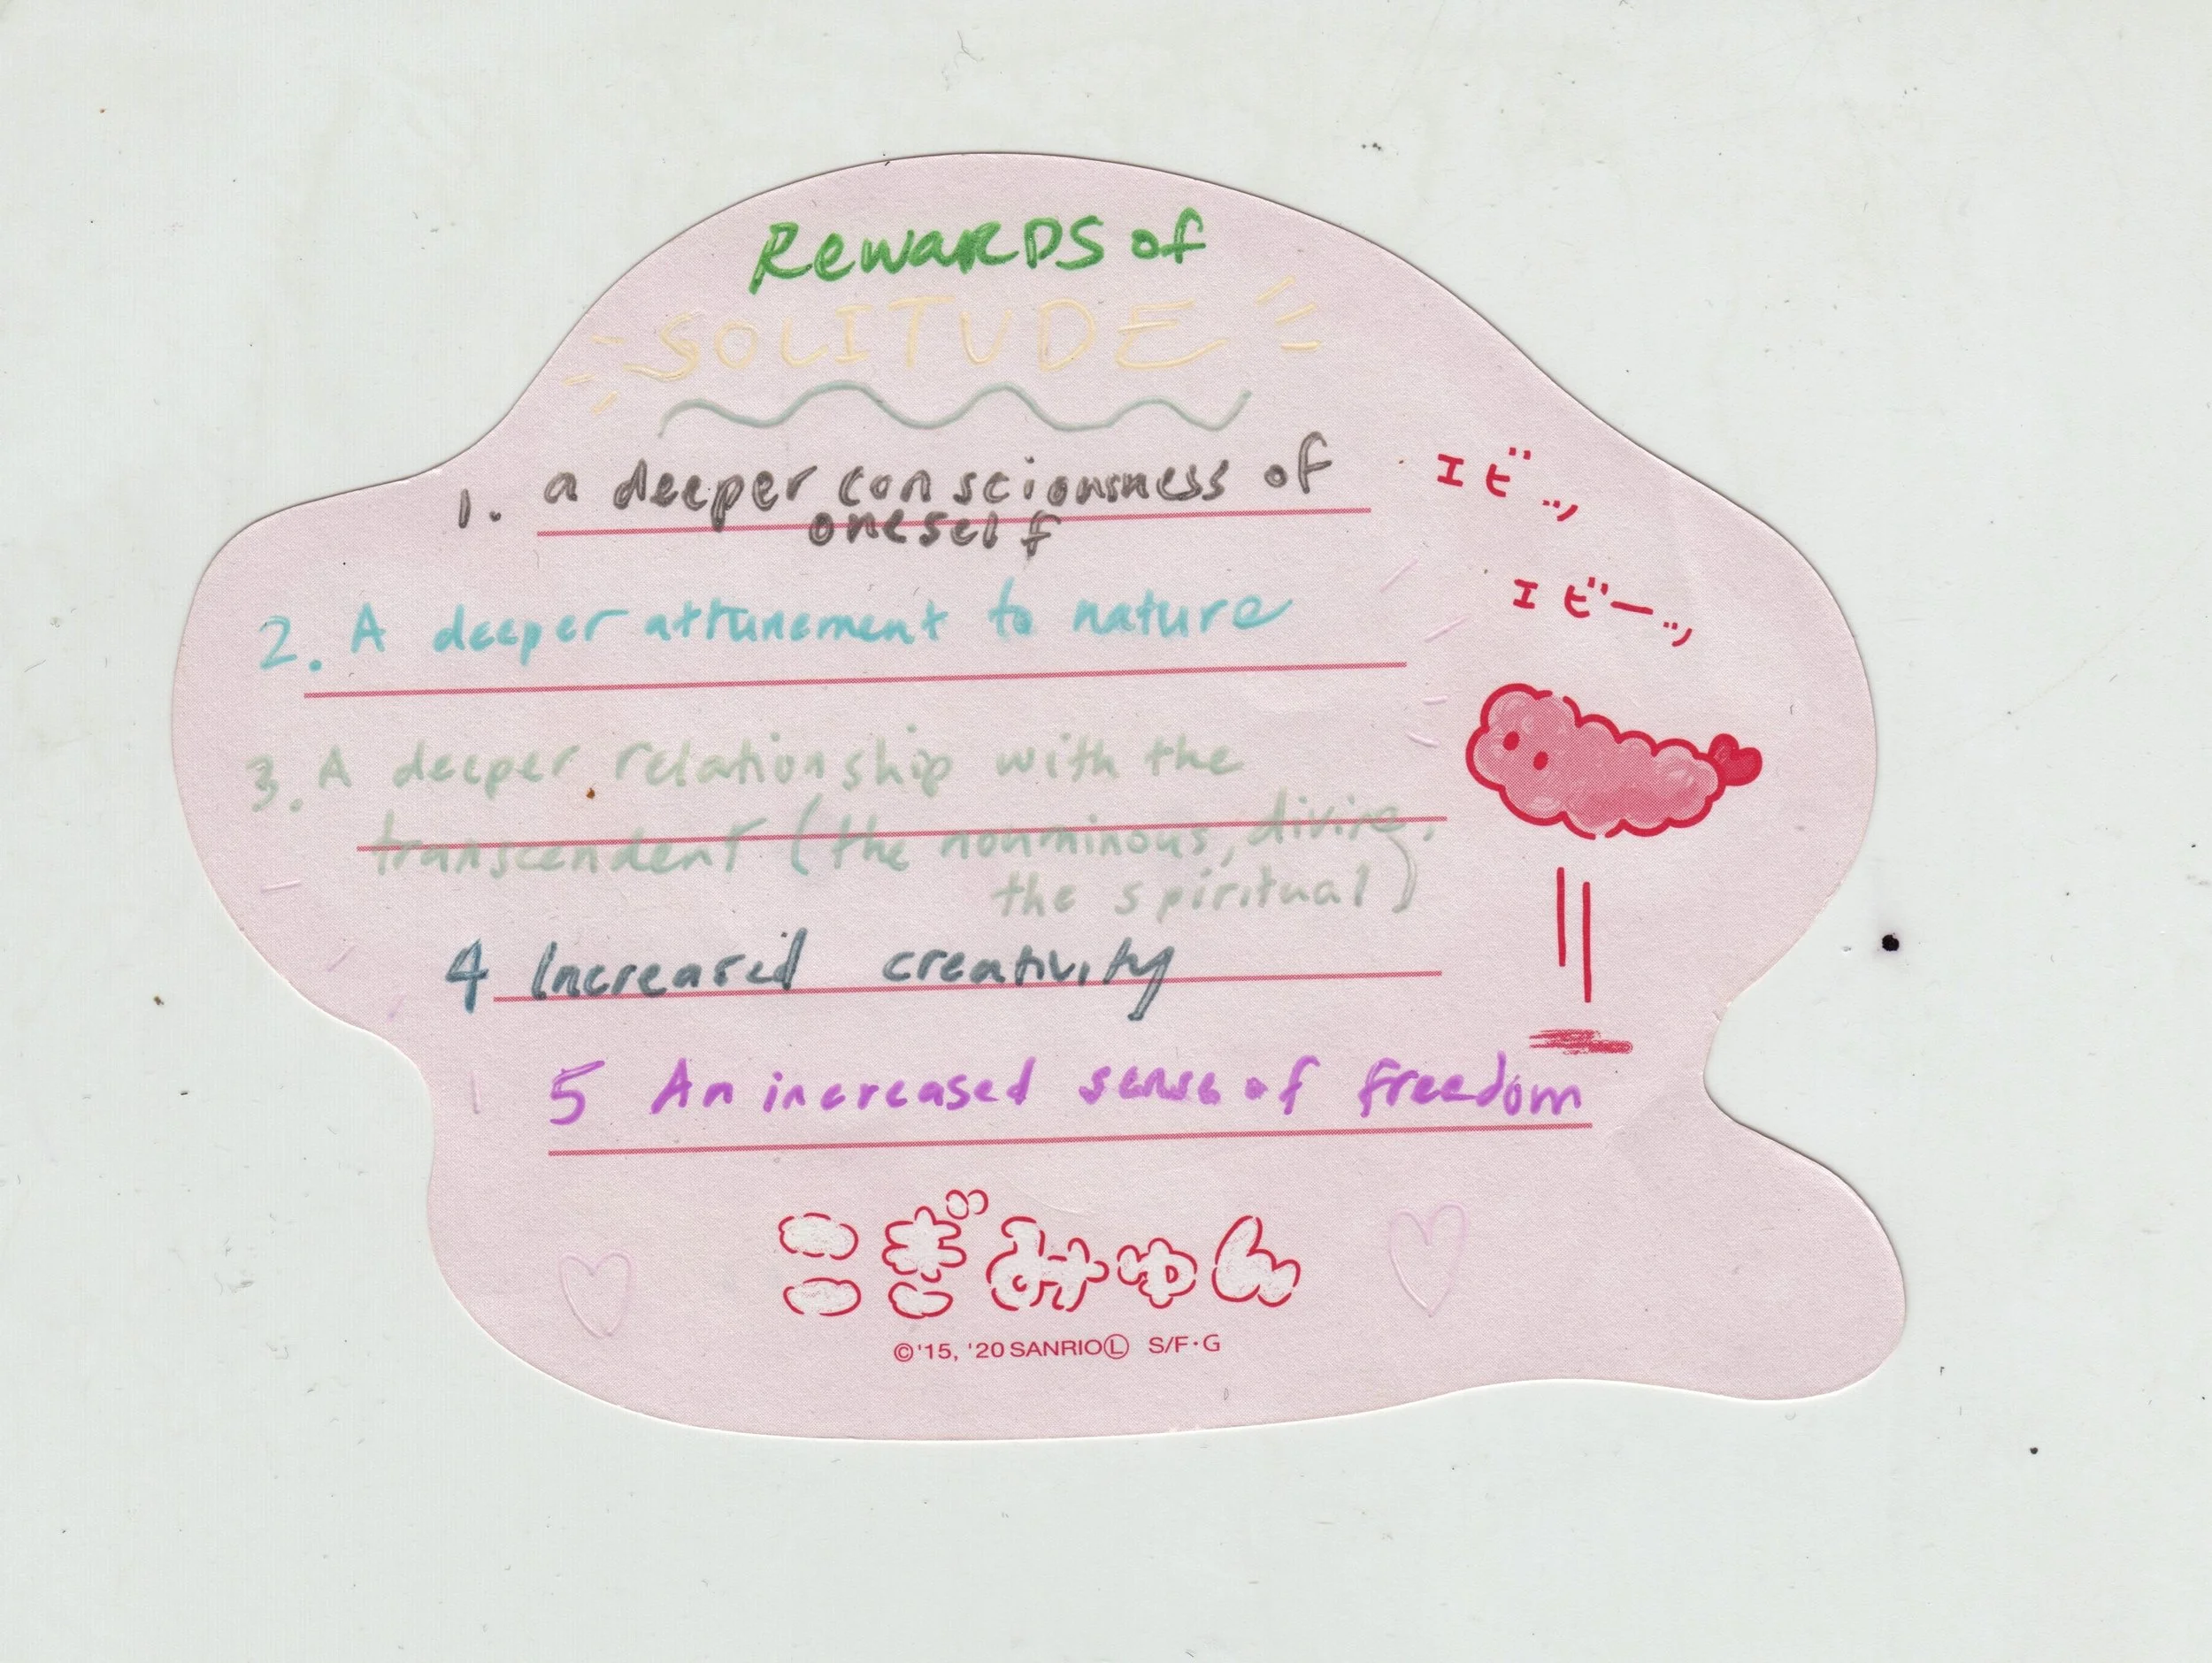 Rewards of
SOLITUDE
1. a deeper consciousness of
oneself
エビッ
エビーッ
2. A deeper attunement to nature
3. A deeper relationship with the
transcendent (the nouminous, divine,
the spiritual)
4 Increased creativity
5 An increased sense of freedom
こぎみゅん
©'15, '20 SANRIO Ⓛ S/F·G